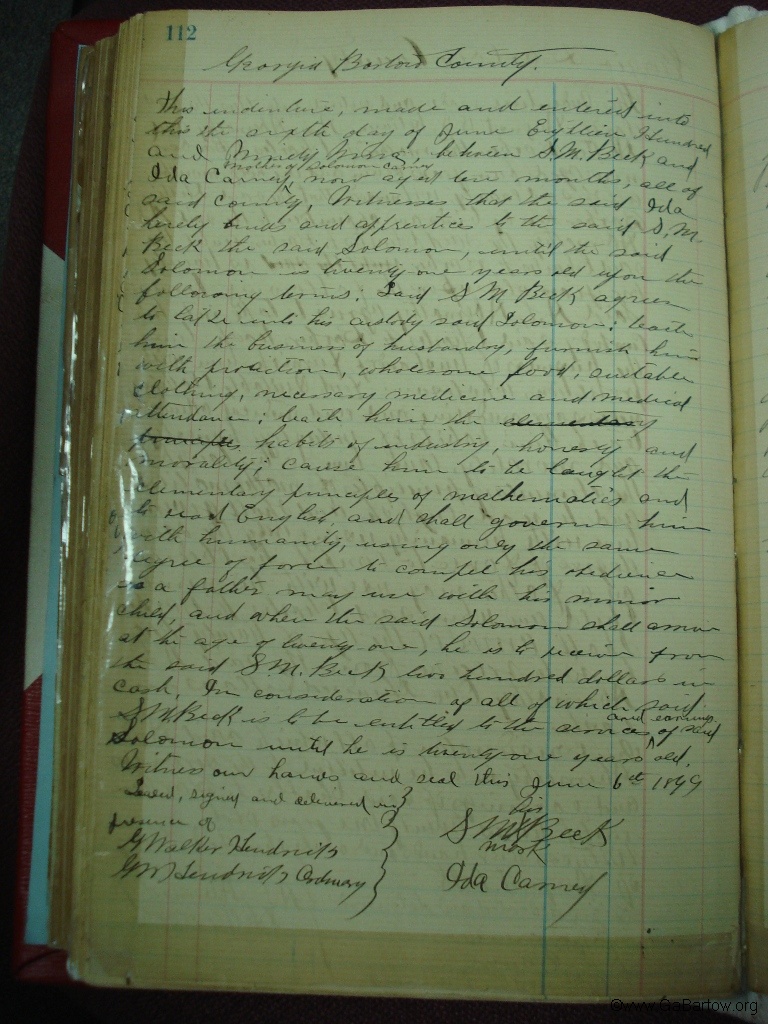 112
Georgia Bartow County.
This indenture, made and entered into
this the sixth day of June Eighteen Hundred
and Ninety Nine, between S.M. Beck and
mother of Solomon Carney
Ida Carney, now aged ten months, all of
said County, Witnesses that the said Ida
hereby binds and apprentices to the said S.M.
Beck the said Solomon, until the said
Solomon is twenty one years old upon the
following terms: Said S M Beck agrees
to take into his custody said Solomon; teach
him the business of husbandry, furnish him
with protection, wholesome food, suitable
clothing, necessary medicine and medical
attendance; teach him the elementary
habits of industry, honesty and
morality; cause him to be taught the
elementary principles of mathematics and
to read English, and shall govern him
with humanity, using only the same
degree of force to compel his obedience
as a father may use with his minor
child, and when the said Solomon shall arrive
at the age of twenty-one, he is to receive from
the said S.M. Beck two hundred dollars in
cash. In consideration of all of which said
and earnings
S M Beck is to be entitled to the services of said
Solomon until he is twenty-one years old.
Witness our hands and seal this June 6th 1899
signed and delivered in
presence of
his
S M Beck
mark
G Walker Hendricks
G W Hendricks Ordinary
Ida Carney
©www.GaBartow.org